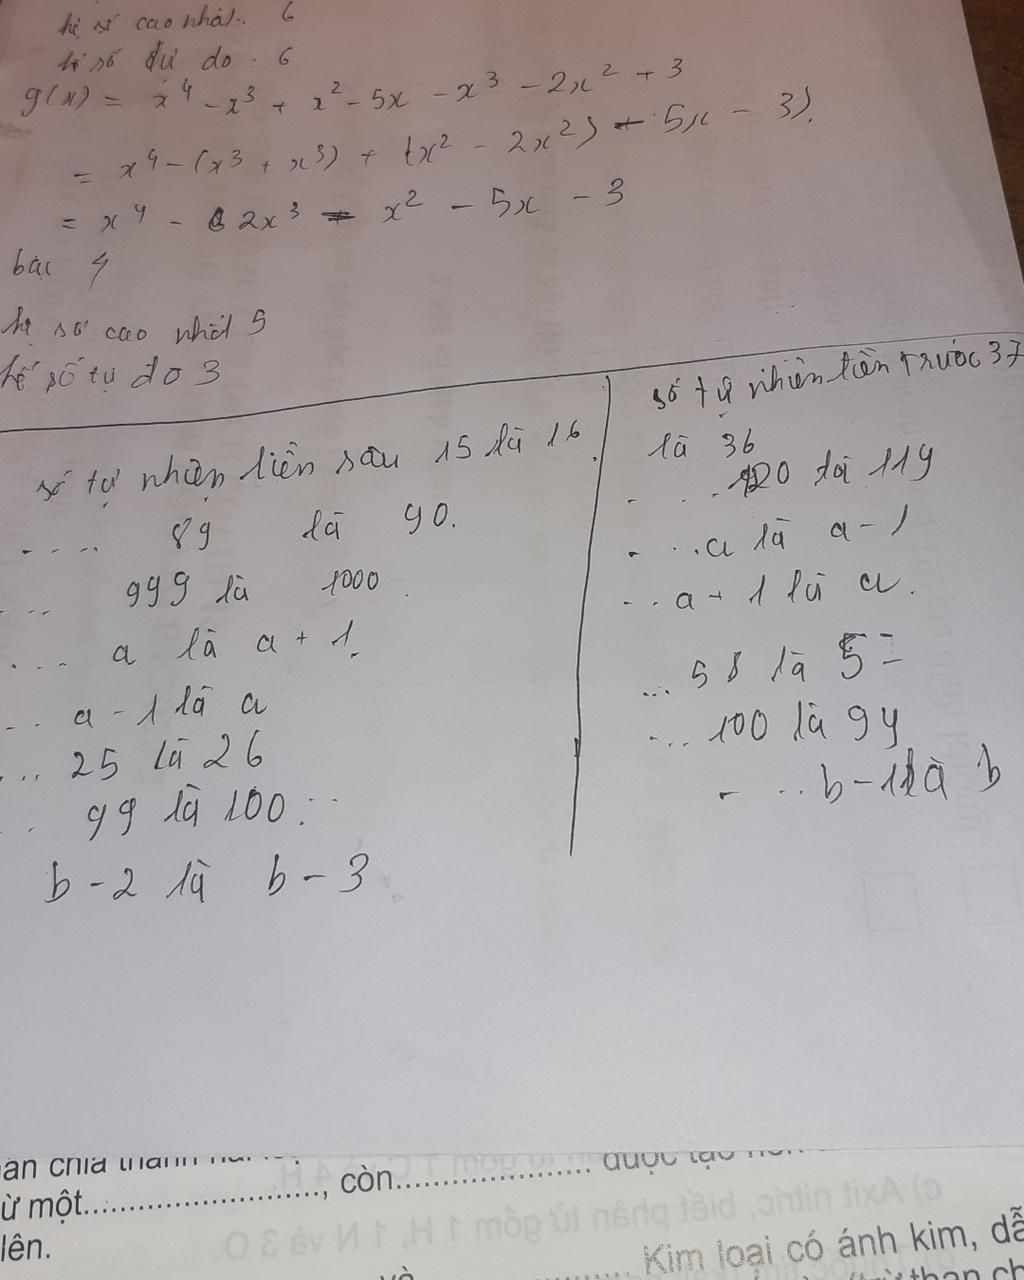 hệ số cao nhất.. 6
hệ số tự do : 6
g(x) = x⁴ - x³ + x² - 5x - x³ - 2x² + 3
= x⁴ - (x³ + x³) + (x² - 2x²) - 5x - 3).
= x⁴ - 2x³ - x² - 5x - 3
bậc 4
hệ số cao nhất 5
hế số tụ do 3
số tự nhiên liền sau 15 là 16.
.... 89 là 90.
... 999 là 1000.
.... a là a + 1.
.. a - 1 là a
... 25 là 26
.. 99 là 100.
b - 2 là b - 3
số tự nhiên liền trước 37
là 36
- ... 120 là 119
- ... a là a - 1
... a + 1 là a.
... 58 là 5
-... 100 là 99
- .. b - 1 là b
ừ một.............................., còn......................... được tạo
lên.
Kim loại có ánh kim, dẫ
và